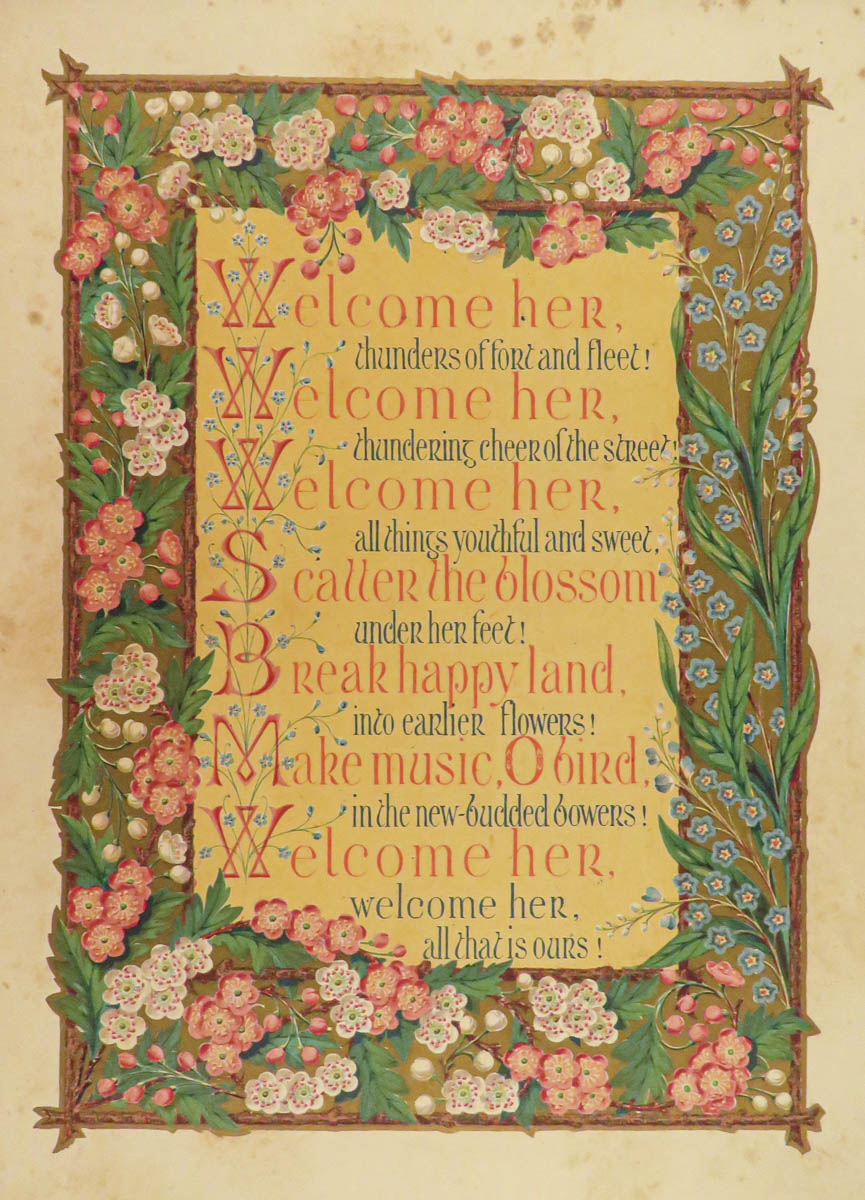 Welcome her,
thunders of fort and fleet!
Welcome her,
thundering cheer of the street!
Welcome her,
all things youthful and sweet,
Scatter the blossom
under her feet!
Break happy land,
into earlier flowers!
Make music, O bird,
in the new-budded bowers!
Welcome her,
welcome her,
all that is ours!